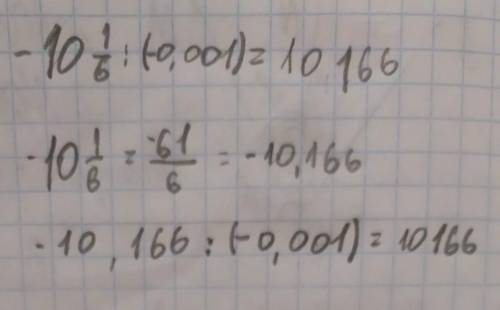 -10 1/6 : (-0,001) = 10 166
-10 1/6 = -61/6 = -10,166
-10,166 : (-0,001) = 10166